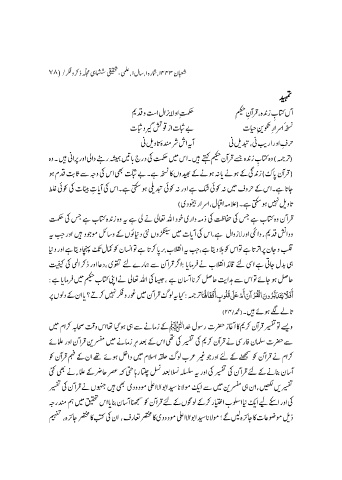 شعبان ۱۴۴۳/شمارہ ۱/سال ۱، علمی، تحقیقی ششماہی مجلہ ذکر و فکر / (۷۸
تمہید
آں کتاب زندہ، قرآن حکیم حکمتِ او لایزال است و قدیم
نسخۂ اسرارِ تکوینِ حیات بے ثبات از قوتش گیرد ثبات
حرفِ او را ریب نی، تبدیل نی آیہ اش شرمندۂ تاویل نی
(ترجمہ) وہ کتاب زندہ جسے قرآن حکیم کہتے ہیں۔ اس میں حکمت کی درج باتیں ہمیشہ رہنے والی اور پرانی ہیں۔ وہ
(قرآن پاک) زندگی کے ہونے یا نہ ہونے کے بھیدوں کا نسخہ ہے۔ بے ثبات بھی اس کی وجہ سے ثابت قدم ہو
جاتا ہے۔ اس کے حروف میں نہ کوئی شک ہے اور نہ کوئی تبدیلی ہو سکتی ہے۔ اس کی آیات بینات کی کوئی غلط
تاویل نہیں ہو سکتی ہے۔ (علامہ اقبال، اسرار
قرآن وہ کتاب ہے جس کی حفاظت کی ذمہ داری خود اللہ تعالیٰ نے لی ہے یہ وہ زندہ کتاب ہے جس کی حکمت
و دانش قدیم، دائمی اور لازوال ہے، اس کی آیات میں سینکڑوں نئی دنیاؤں کے وسائل موجود ہیں اور جب یہ
قلب و جان پر اترتا ہے تو اس کو بدل دیتا ہے، جب یہ انقلاب برپا کرتا ہے تو انسان کو کمال تک پہنچا دیتا ہے اور دنیا
ہی بدل جاتی ہے اسی لئے قائد انقلاب نے فرمایا: اگر قرآن سے ہمارے لئے تقویٰ، دعا اور ذکر الٰہی کی کیفیت
حاصل ہو جائے تو اس سے ہدایت حاصل کرنا آسان ہے، جیسا کہ اللہ تعالیٰ نے اپنی کتاب حکیم میں فرمایا ہے:
أَفَلَا يَتَدَبَّرُونَ الْقُرْآنَ أَمْ عَلَىٰ قُلُوبٍ أَقْفَالُهَا ترجمہ: کیا یہ لوگ قرآن میں غور و فکر نہیں کرتے؟ یا ان کے دلوں پر
تالے لگے ہوئے ہیں۔ (محمد/۲۴)
ویسے تو تفسیر قرآن کریم کا آغاز حضرت رسول خداﷺ کے زمانے سے ہی ہو گیا تھا اس وقت صحابہ کرام میں
سے حضرت سلمان فارسی نے قرآن کریم کی تفسیر کی تھی اس کے بعد ہر زمانے میں مفسرین قرآن اور علمائے
کرام نے قرآن کو سمجھنے کے لئے اور جو غیر عرب لوگ حلقہ اسلام میں داخل ہوئے تھے ان کے فہم قرآن کو
آسان بنانے کے لئے قرآن کی تفسیر کی اور یہ سلسلہ نسلاً بعد نسل چلتا رہا حتی کہ عصر حاضر کے علماء نے بھی کئی
تفسیریں لکھیں، ان ہی مفسرین میں سے ایک مولانا سید ابو الاعلی مودودی بھی ہیں جنہوں نے قرآن کی تفسیر
کی اور اسکے لیے ایک نیا اسلوب اختیار کر کے لوگوں کے لئے قرآن کو سمجھنا آسان بنایا اس تحقیق میں ہم مندرجہ
ذیل موضوعات کا جائزہ لیں گے: مولانا سید ابو الاعلی مودودی کا مختصر تعارف، ان کی کتب کا مختصر جائزہ، تفہیم